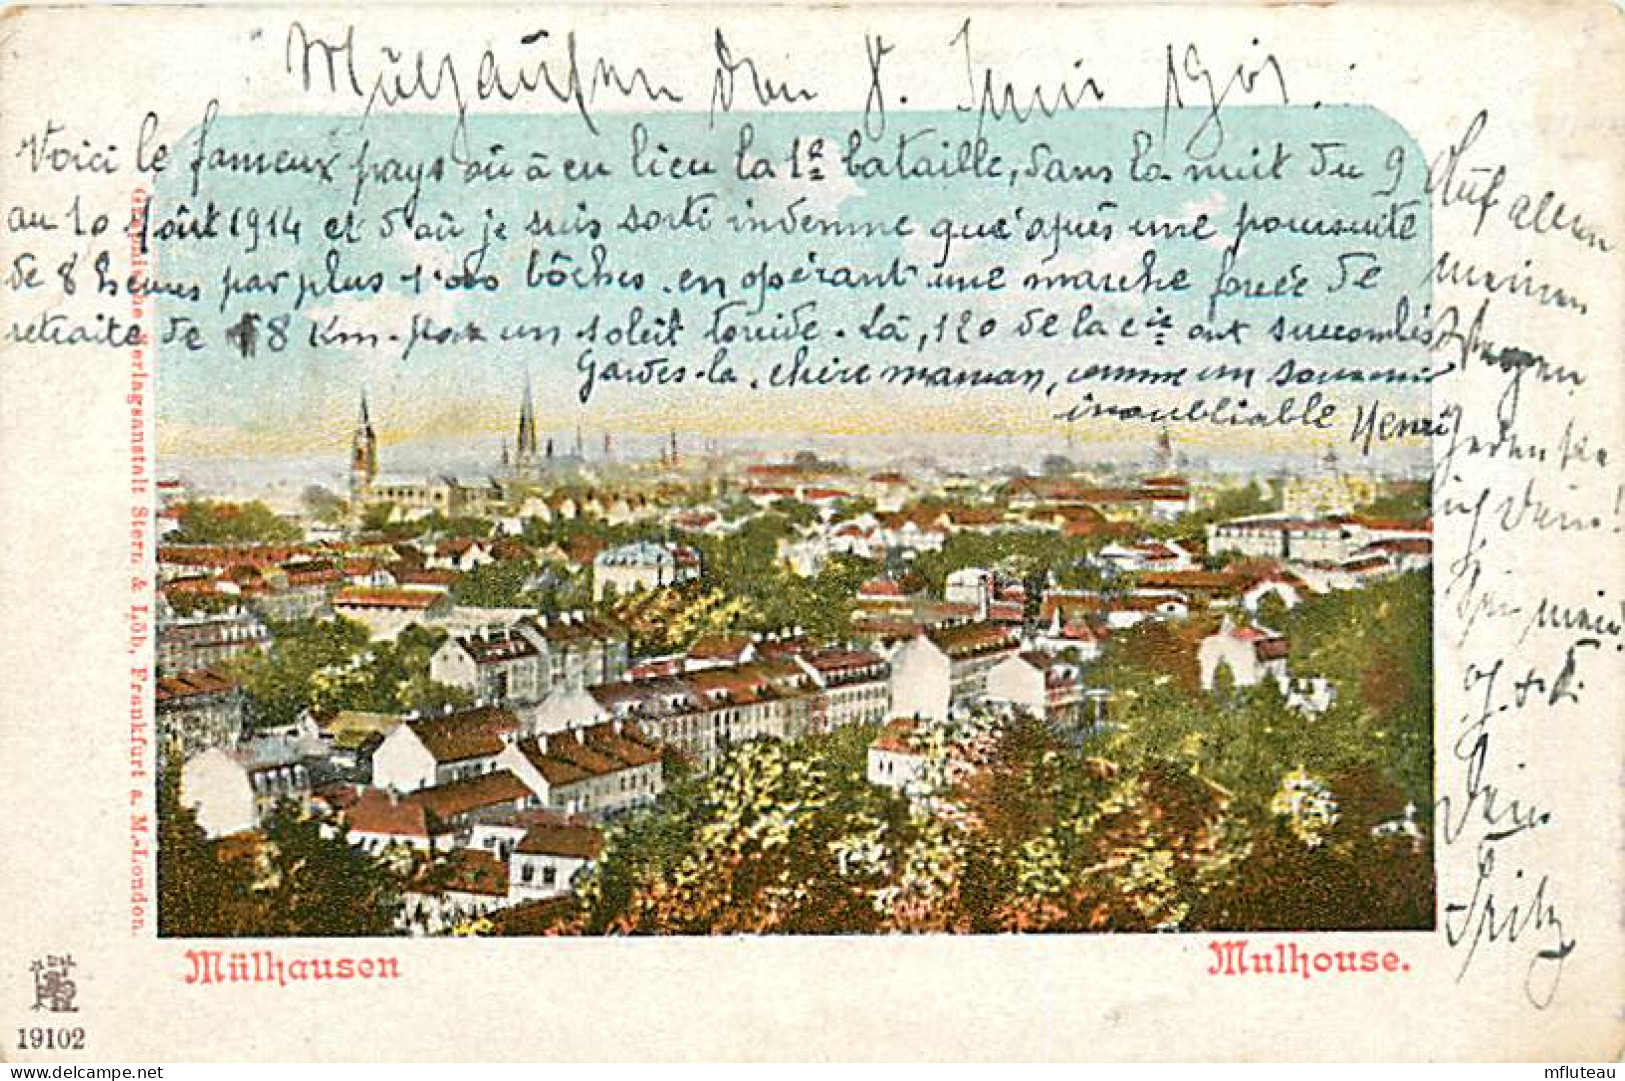 Mülhausen den 8. Juni 1901.
Voici le fameux pays où à eu lieu la 1e bataille, dans la nuit du 9
au 10 Août 1914 et d'où je suis sorti indemne qu'après une poursuite
de 8 heures par plus 1.000 bôches. en opérant une marche forcée de
retraite de 18 Km. par un soleil torride. Là, 120 de la cie ont succombés
Gardes-la, chère maman, comme un souvenir
inoubliable Henri
Auf allen
meinen
Wegen
ich Dein!
mein!
Dein
Fritz
Graphische Verlagsanstalt Stern & Löh, Frankfurt a. M.-London.
Mülhausen
Mulhouse.
19102
mfluteau